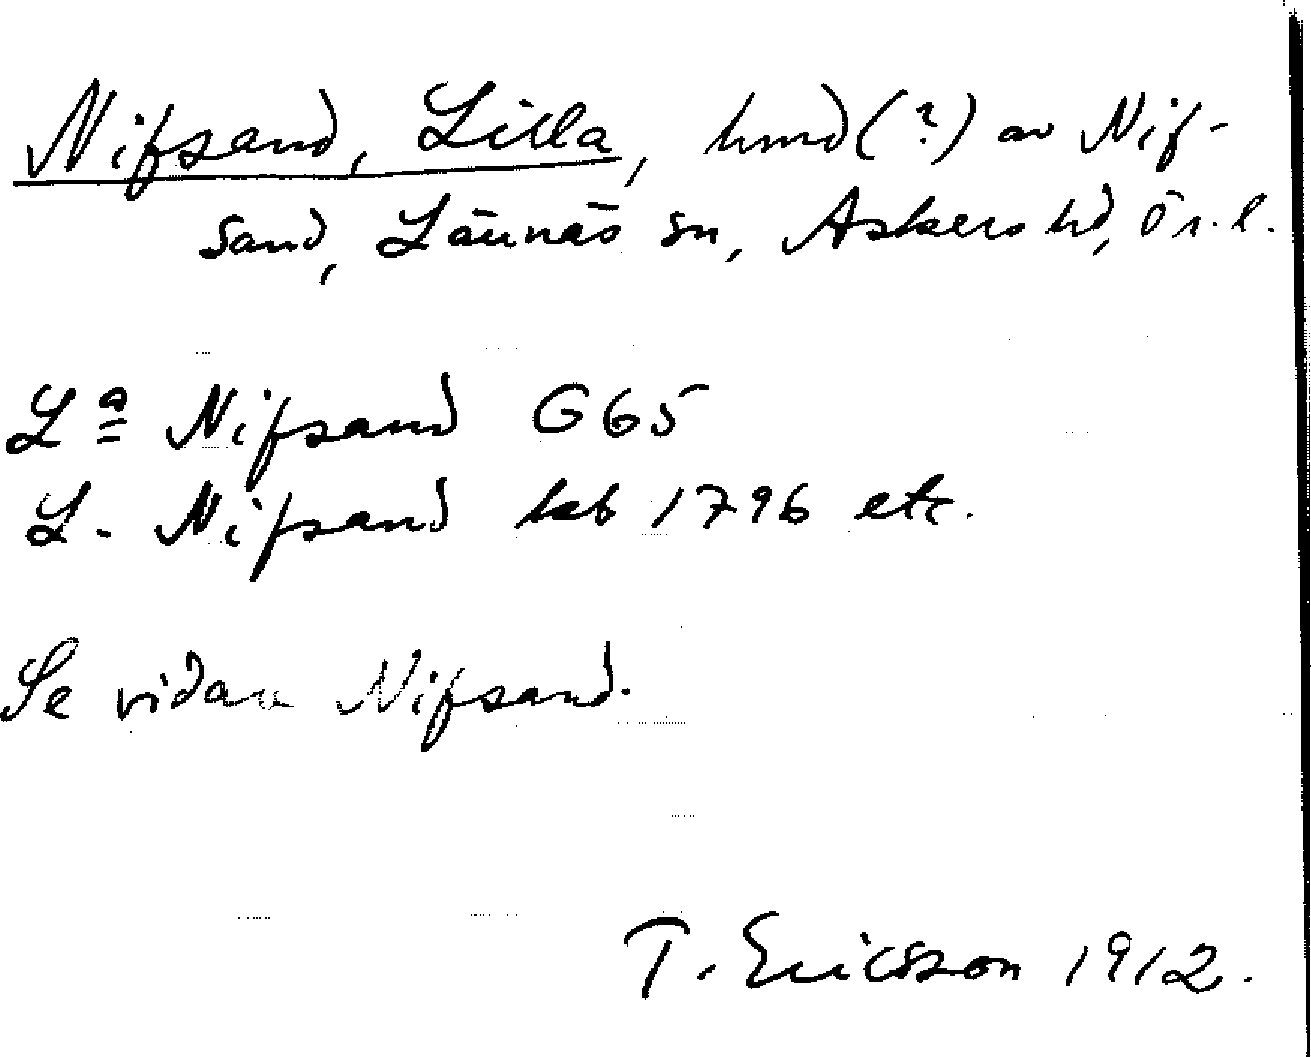 Nifsand, Lilla, hmd(?) av Nif-
sand, Lännäs sn, Askers hd, Ör. l.
La Nifsand G65
L. Nifsand kb 1796 etc.
Se vidare Nifsand.
T. Ericsson 1912.